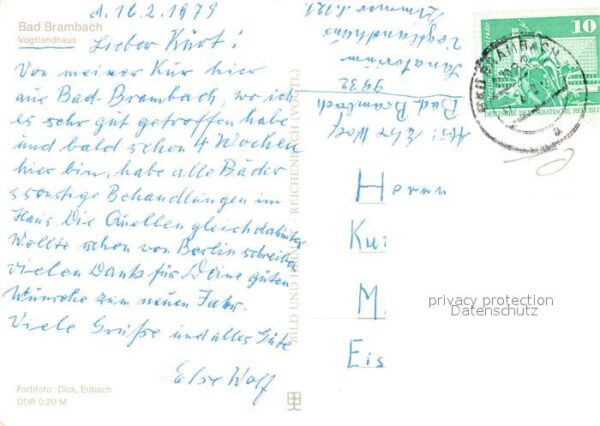 d. 16.2.1979
Bad Brambach
Vogtlandhaus
Lieber Kurt!
Von meiner Kur hier
aus Bad-Brambach, wo ich
es sehr gut getroffen habe
und bald schon 4 Wochen
hier bin, habe alle Bäder
s sonstige Behandlungen im
Haus. Die Quellen gleich dahinter
Wollte schon von Berlin schreiben
vielen Dank für Deine guten
Wünsche zum neuen Jahr.
Viele Grüße und alles Gute
Else Wolf
Farbfoto: Dick, Erlbach
DDR 0,20 M
BILD UND HEIMAT REICHENBACH (VOGTL)
Abs: Else Wolf
Bad Brambach
9932
Sanatorium
Vogtlandhaus
Zimmer
10
DEUTSCHE DEMOKRATISCHE REPUBLIK
BAD BRAMBACH
a
Herrn
Kur
M.
Eis
privacy protection
Datenschutz